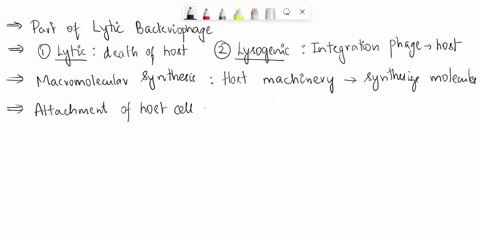 ⇒ Part of Lytic Bacteriophage
⇒ ① Lytic : death of host ② Lysogenic : Integration phage → host
⇒ Macromolecular synthesis : Host machinery → synthesize molecules
⇒ Attachment of host cell